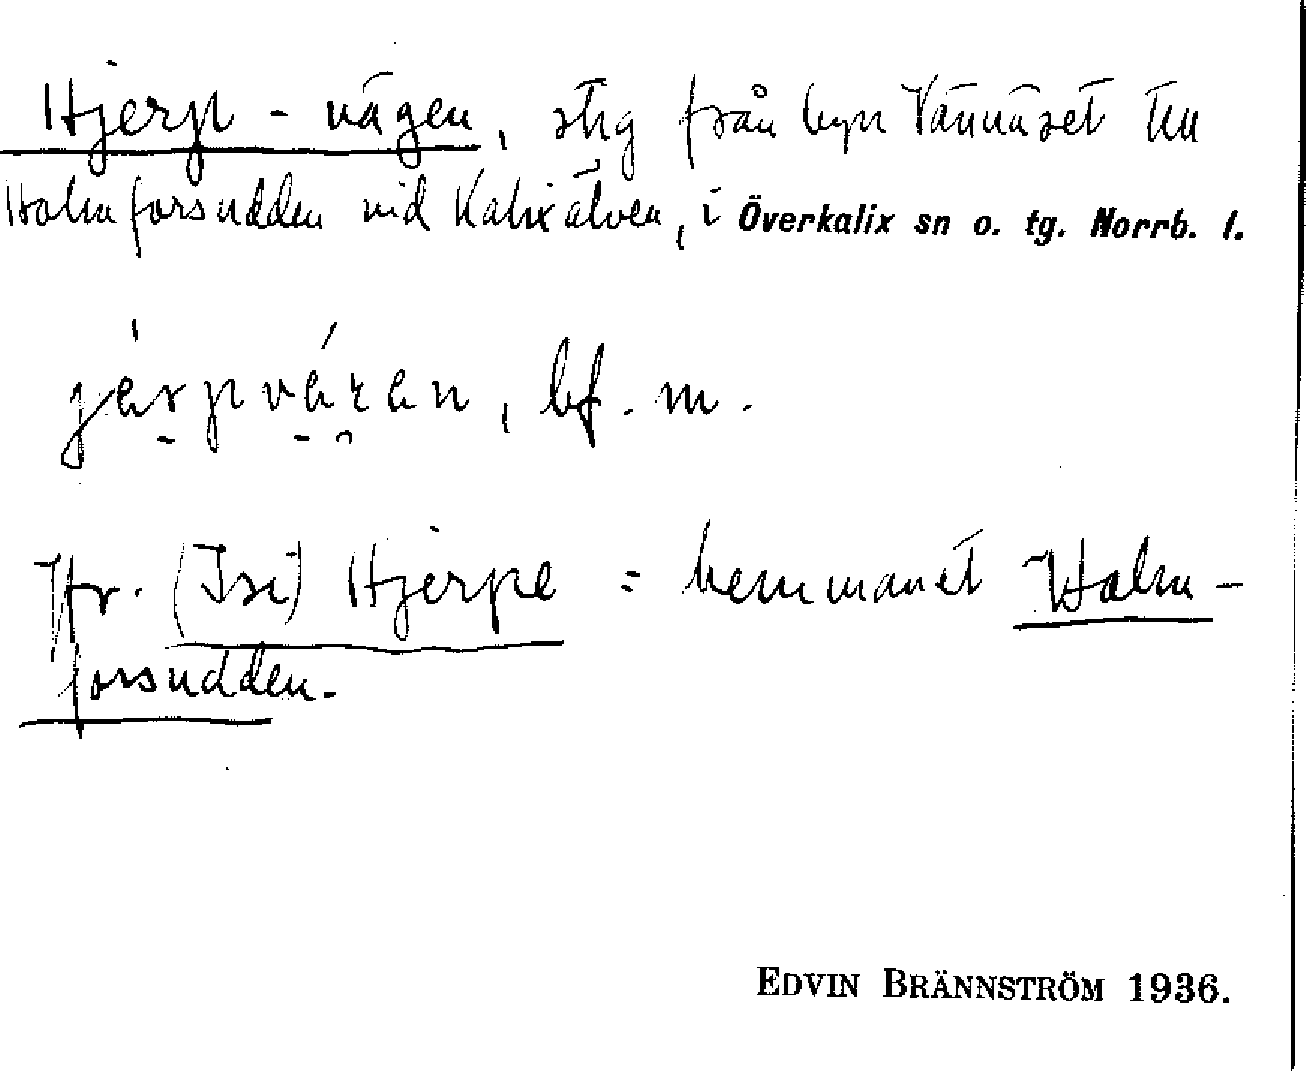 Hjerp-vägen, stig från byn Vännäset till
Holmforsudden vid Kalixälven, i Överkalix sn o. tg. Norrb. l.
bf. m.
Jfr. (Isi) Hjerpe = hemmanet Holm-
forsudden.
EDVIN BRÄNNSTRÖM 1936.